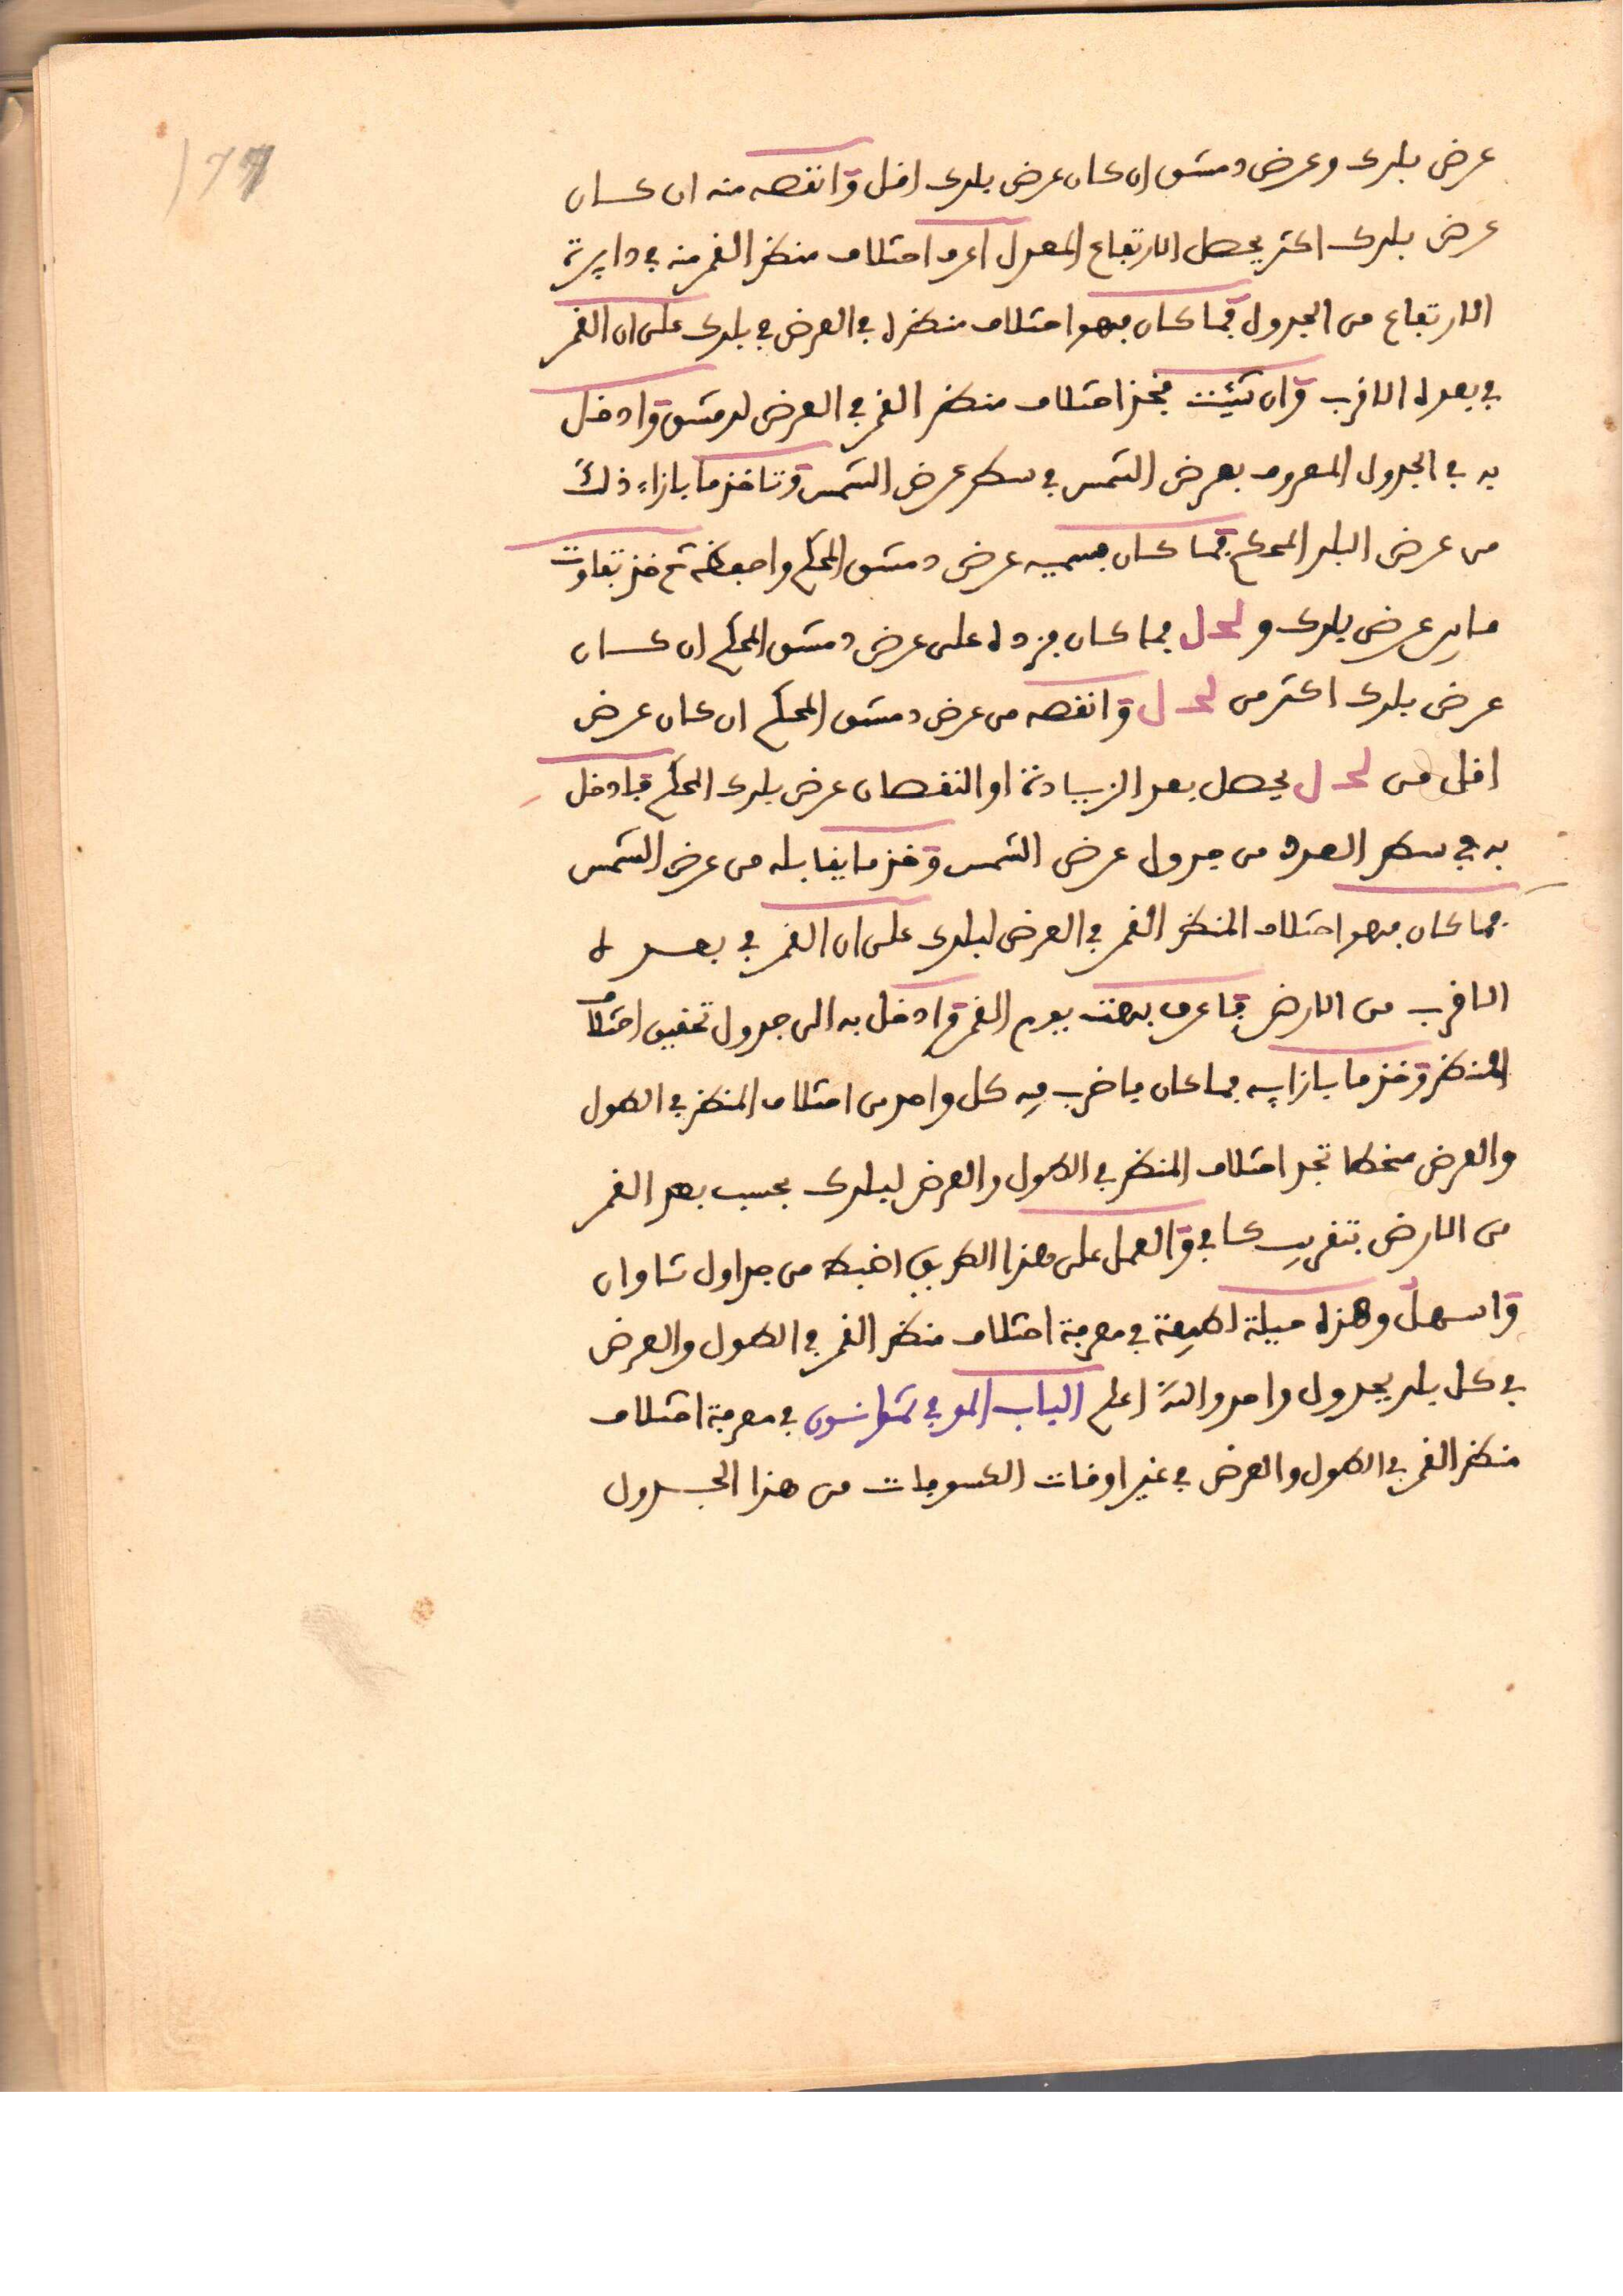 177
عرض بلدك وعرض دمشق ان كان عرض بلدك اقل وانقصه منه ان كان
عرض بلدك اكثر يحصل الارتفاع المعدل اعرف اختلاف منظر القمر منه في دايرة
الارتفاع من الجدول فما كان فهو اختلاف منظره في العرض في بلدك على ان القمر
في بعده الاقرب وان شيئت فخذ اختلاف منظر القمر في العرض لدمشق وادخل
به في الجدول المعروف بعرض الشمس في سطر عرض الشمس وتاخذ ما بازاء ذلك
من عرض البلد المحكم فما كان فسميه عرض دمشق المحكم واحفظه ثم خذ تفاوت
ما بين عرض بلدك و لحل فما كان فزده على عرض دمشق المحكم ان كان
عرض بلدك اكثر من لحل وانقصه من عرض دمشق المحكم ان كان عرض
اقل من لحل يحصل بعد الزيادة او النقصان عرض بلدك المحكم فادخل
به في سطر العدد من جدول عرض الشمس وخذ ما يقابله من عرض الشمس
فما كان فهو اختلاف المنظر القمر في العرض لبلدك على ان القمر في بعده
الاقرب من الارض فاعرف بهت يوم القمر وادخل به الى جدول تحقيق اختلاف
المنظر وخذ ما بازايه فما كان فاضرب فيه كل واحد من اختلاف المنظر في الطول
والعرض منحطا تجد اختلاف المنظر في الطول والعرض لبلدك بحسب بعد القمر
من الارض بتقريب كافي والعمل على هذا الطريق اضبط من جداول تاوان
واسهل وهذه حيلة لطيفة في معرفة اختلاف منظر القمر في الطول والعرض
في كل بلد بجدول واحد والله اعلم الباب الموفي ثمانون في معرفة اختلاف
منظر القمر في الطول والعرض في غير اوقات الكسوفات من هذا الجدول